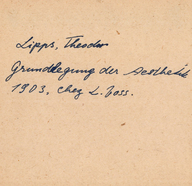 Lipps, Theodor
Grundlegung der Aesthetik
1903, chez L. Voss.